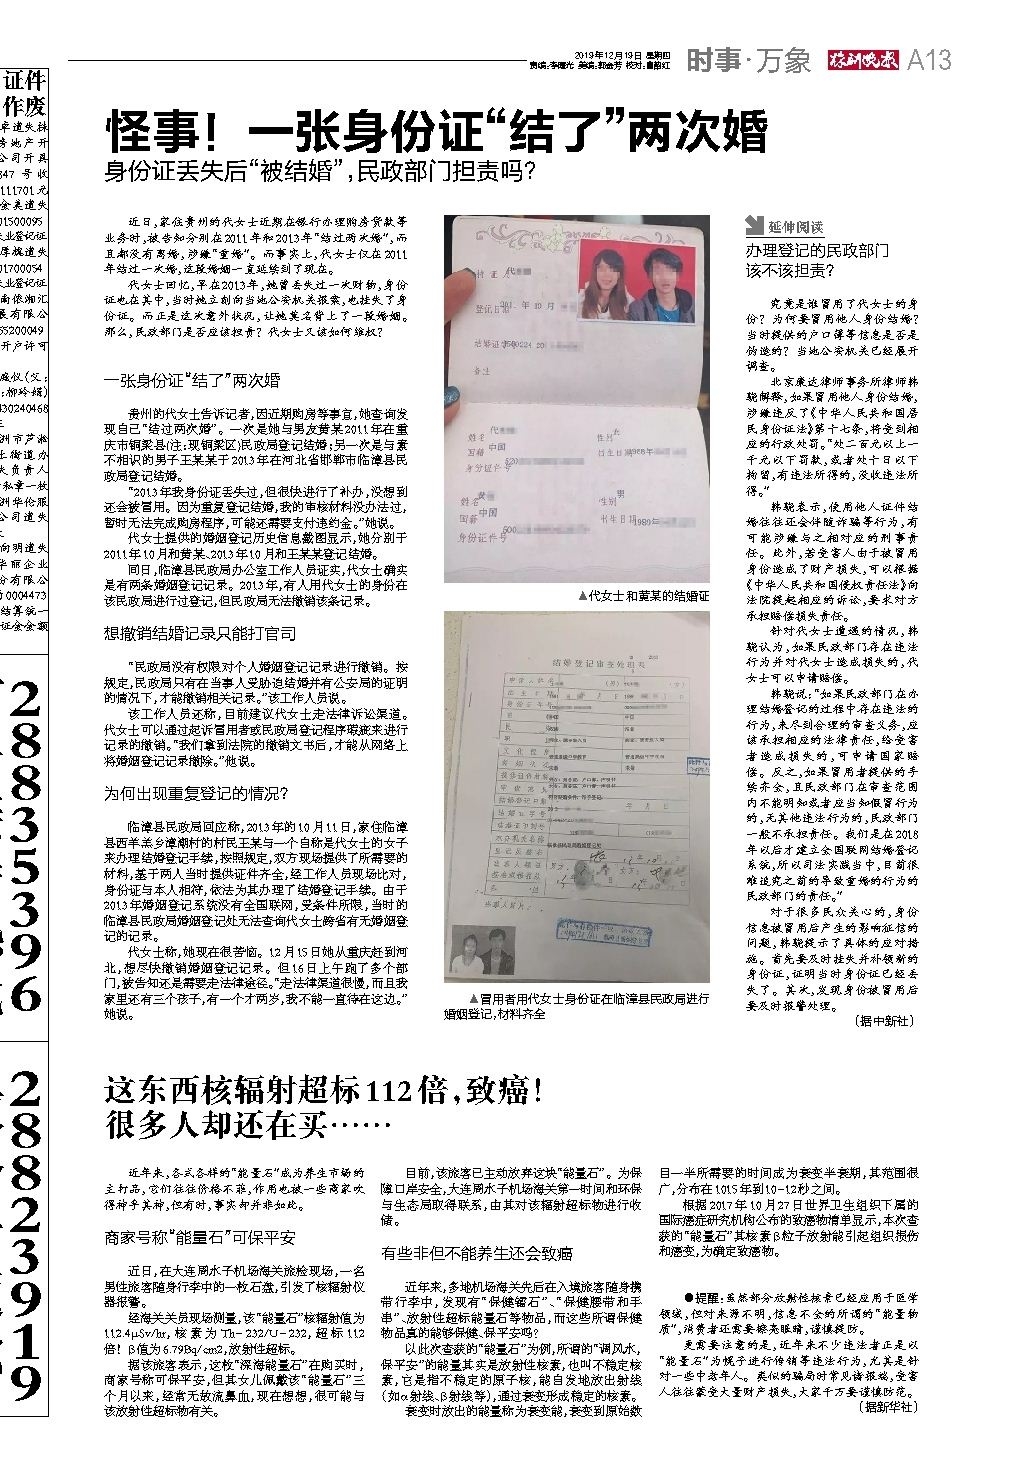 2019年12月19日 星期四
时事·万象
株洲晚报 A13
证件
作废
怪事！一张身份证“结了”两次婚
身份证丢失后“被结婚”,民政部门担责吗？
近日,家住贵州的代女士近期在银行办理购房贷款等
业务时,被告知分别在2011年和2013年“结过两次婚”,而
且都没有离婚,涉嫌“重婚”。而事实上,代女士仅在2011
年结过一次婚,这段婚姻一直延续到了现在。
代女士回忆,早在2013年,她曾丢失过一次财物,身份
证也在其中,当时她立刻向当地公安机关报案,也挂失了身
份证。而正是这次意外状况,让她莫名背上了一段婚姻。
那么,民政部门是否应该担责？代女士又该如何维权？
一张身份证“结了”两次婚
贵州的代女士告诉记者,因近期购房等事宜,她查询发
现自己“结过两次婚”。一次是她与男友黄某2011年在重
庆市铜梁县(注:现铜梁区)民政局登记结婚；另一次是与素
不相识的男子王某某于2013年在河北省邯郸市临漳县民
政局登记结婚。
“2013年我身份证丢失过,但很快进行了补办,没想到
还会被冒用。因为重复登记结婚,我的审核材料没办法过,
暂时无法完成购房程序,可能还需要支付违约金。”她说。
代女士提供的婚姻登记历史信息截图显示,她分别于
2011年10月和黄某、2013年10月和王某某登记结婚。
同日,临漳县民政局办公室工作人员证实,代女士确实
是有两条婚姻登记记录。2013年,有人用代女士的身份在
该民政局进行过登记,但民政局无法撤销该条记录。
想撤销结婚记录只能打官司
“民政局没有权限对个人婚姻登记记录进行撤销。按
规定,民政局只有在当事人受胁迫结婚并有公安局的证明
的情况下,才能撤销相关记录。”该工作人员说。
该工作人员还称,目前建议代女士走法律诉讼渠道。
代女士可以通过起诉冒用者或民政局登记程序瑕疵来进行
记录的撤销。“我们拿到法院的撤销文书后,才能从网络上
将婚姻登记记录撤除。”他说。
为何出现重复登记的情况？
临漳县民政局回应称,2013年的10月11日,家住临漳
县西羊羔乡漳潮村的村民王某与一个自称是代女士的女子
来办理结婚登记手续,按照规定,双方现场提供了所需要的
材料,基于两人当时提供证件齐全,经工作人员现场比对,
身份证与本人相符,依法为其办理了结婚登记手续。由于
2013年婚姻登记系统没有全国联网,受条件所限,当时的
临漳县民政局婚姻登记处无法查询代女士跨省有无婚姻登
记的记录。
代女士称,她现在很苦恼。12月15日她从重庆赶到河
北,想尽快撤销婚姻登记记录。但16日上午跑了多个部
门,被告知还是需要走法律途径。“走法律渠道很慢,而且我
家里还有三个孩子,有一个才两岁,我不能一直待在这边。”
她说。
▲代女士和黄某的结婚证
结婚登记审查处理表
▲冒用者用代女士身份证在临漳县民政局进行
婚姻登记,材料齐全
延伸阅读
办理登记的民政部门
该不该担责？
究竟是谁冒用了代女士的身
份？为何要冒用他人身份结婚？
当时提供的户口簿等信息是否是
伪造的？当地公安机关已经展开
调查。
北京康达律师事务所律师韩
骁解释,如果冒用他人身份结婚,
涉嫌违反了《中华人民共和国居
民身份证法》第十七条,将受到相
应的行政处罚。“处二百元以上一
千元以下罚款,或者处十日以下
拘留,有违法所得的,没收违法所
得。”
韩骁表示,使用他人证件结
婚往往还会伴随诈骗等行为,有
可能涉嫌与之相对应的刑事责
任。此外,若受害人由于被冒用
身份造成了财产损失,可以根据
《中华人民共和国侵权责任法》向
法院提起相应的诉讼,要求对方
承担赔偿损失责任。
针对代女士遭遇的情况,韩
骁认为,如果民政部门存在违法
行为并对代女士造成损失的,代
女士可以申请赔偿。
韩骁说:“如果民政部门在办
理结婚登记的过程中存在违法的
行为,未尽到合理的审查义务,应
该承担相应的法律责任,给受害
者造成损失的,可申请国家赔
偿。反之,如果冒用者提供的手
续齐全,且民政部门在审查范围
内不能明知或者应当知假冒行为
的,无其他违法行为的,民政部门
一般不承担责任。我们是在2018
年以后才建立全国联网结婚登记
系统,所以司法实践当中,目前很
难追究之前的导致重婚的行为的
民政部门的责任。”
对于很多民众关心的,身份
信息被冒用后产生的影响征信的
问题,韩骁提示了具体的应对措
施。首先要及时挂失并补领新的
身份证,证明当时身份证已经丢
失了。其次,发现身份被冒用后
要及时报警处理。
（据中新社）
这东西核辐射超标112倍,致癌！
很多人却还在买……
近年来,各式各样的“能量石”成为养生市场的
主打品,它们往往价格不菲,作用也被一些商家吹
得神乎其神,但有时,事实却并非如此。
商家号称“能量石”可保平安
近日,在大连周水子机场海关旅检现场,一名
男性旅客随身行李中的一枚石盘,引发了核辐射仪
器报警。
经海关关员现场测量,该“能量石”核辐射值为
112.4μSv/hr,核素为Th-232/U-232,超标112
倍！β值为6.79Bq/cm2,放射性超标。
据该旅客表示,这枚“深海能量石”在购买时,
商家号称可保平安,但其女儿佩戴该“能量石”三
个月以来,经常无故流鼻血,现在想想,很可能与
该放射性超标物有关。
目前,该旅客已主动放弃这块“能量石”。为保
障口岸安全,大连周水子机场海关第一时间和环保
与生态局取得联系,由其对该辐射超标物进行收
储。
有些非但不能养生还会致癌
近年来,多地机场海关先后在入境旅客随身携
带行李中,发现有“保健锗石”、“保健腰带和手
串”、放射性超标能量石等物品,而这些所谓保健
物品真的能够保健、保平安吗？
以此次查获的“能量石”为例,所谓的“调风水,
保平安”的能量其实是放射性核素,也叫不稳定核
素,它是指不稳定的原子核,能自发地放出射线
(如α射线、β射线等),通过衰变形成稳定的核素。
衰变时放出的能量称为衰变能,衰变到原始数
目一半所需要的时间成为衰变半衰期,其范围很
广,分布在1015年到10-12秒之间。
根据2017年10月27日世界卫生组织下属的
国际癌症研究机构公布的致癌物清单显示,本次查
获的“能量石”其核素β粒子放射能引起组织损伤
和癌变,为确定致癌物。
●提醒:虽然部分放射性核素已经应用于医学
领域,但对来源不明,信息不全的所谓的“能量物
质”,消费者还需要擦亮眼睛,谨慎提防。
更需要注意的是,近年来不少违法者正是以
“能量石”为幌子进行传销等违法行为,尤其是针
对一些中老年人。类似的骗局时常见诸报端,受害
人往往蒙受大量财产损失,大家千万要谨慎防范。
（据新华社）